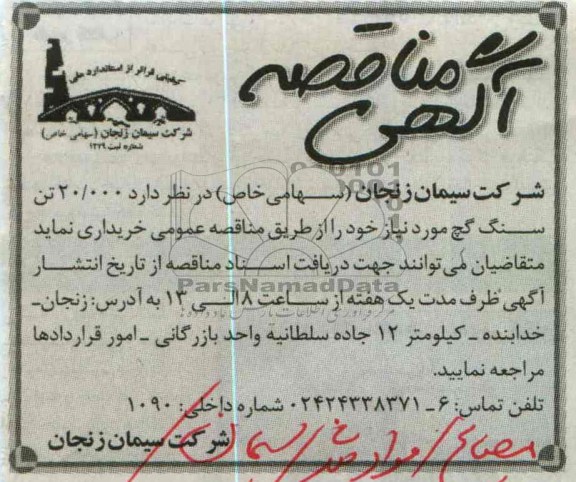 آگهی مناقصه
کیفیتی فراتر از استاندارد ملی
شرکت سیمان زنجان (سهامی خاص)
شماره ثبت ۱۳۲۹
شرکت سیمان زنجان (سهامی خاص) در نظر دارد ۲۰/۰۰۰ تن
سنگ گچ مورد نیاز خود را از طریق مناقصه عمومی خریداری نماید
متقاضیان می توانند جهت دریافت اسناد مناقصه از تاریخ انتشار
آگهی ظرف مدت یک هفته از ساعت ۸ الی ۱۳ به آدرس: زنجان-
خدابنده - کیلومتر ۱۲ جاده سلطانیه واحد بازرگانی - امور قراردادها
مراجعه نمایید.
تلفن تماس: ۶ - ۰۲۴۲۴۳۳۸۳۷۱ شماره داخلی: ۱۰۹۰
شرکت سیمان زنجان
ParsNamadData